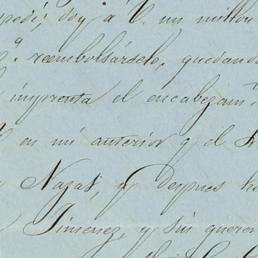 pedí; doy á V. un millon
p.ª reembolsárselo, quedand
imprenta el encabezam.to
en mi anterior y el
Nazat, y despues h
Jimenez, y sin queren